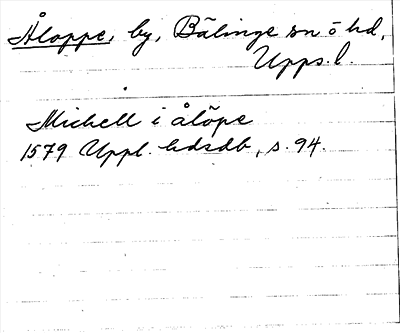 Åloppe, by, Bälinge sn o hd,
Upps. l.
Michell i ålöpe
1579 Uppl. hdsdb, s. 94.